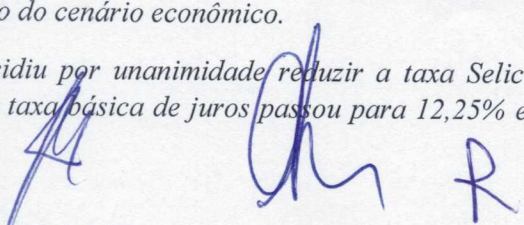 o do cenário econômico.
idiu por unanimidade reduzir a taxa Selic
taxa básica de juros passou para 12,25% e